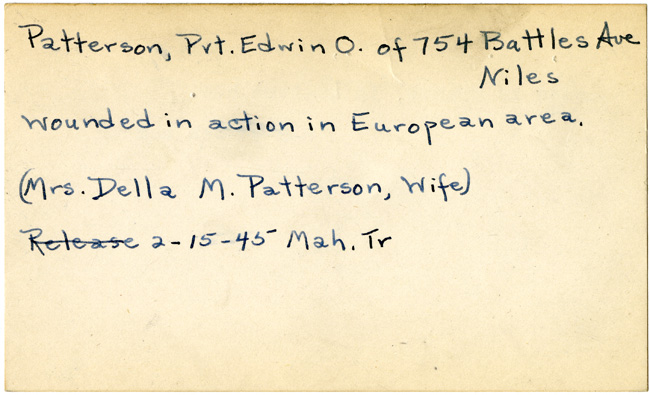 Patterson, Pvt. Edwin O. of 754 Battles Ave
Niles
wounded in action in European area.
(Mrs. Della M. Patterson, Wife)
Release 2-15-45 Mah. Tr